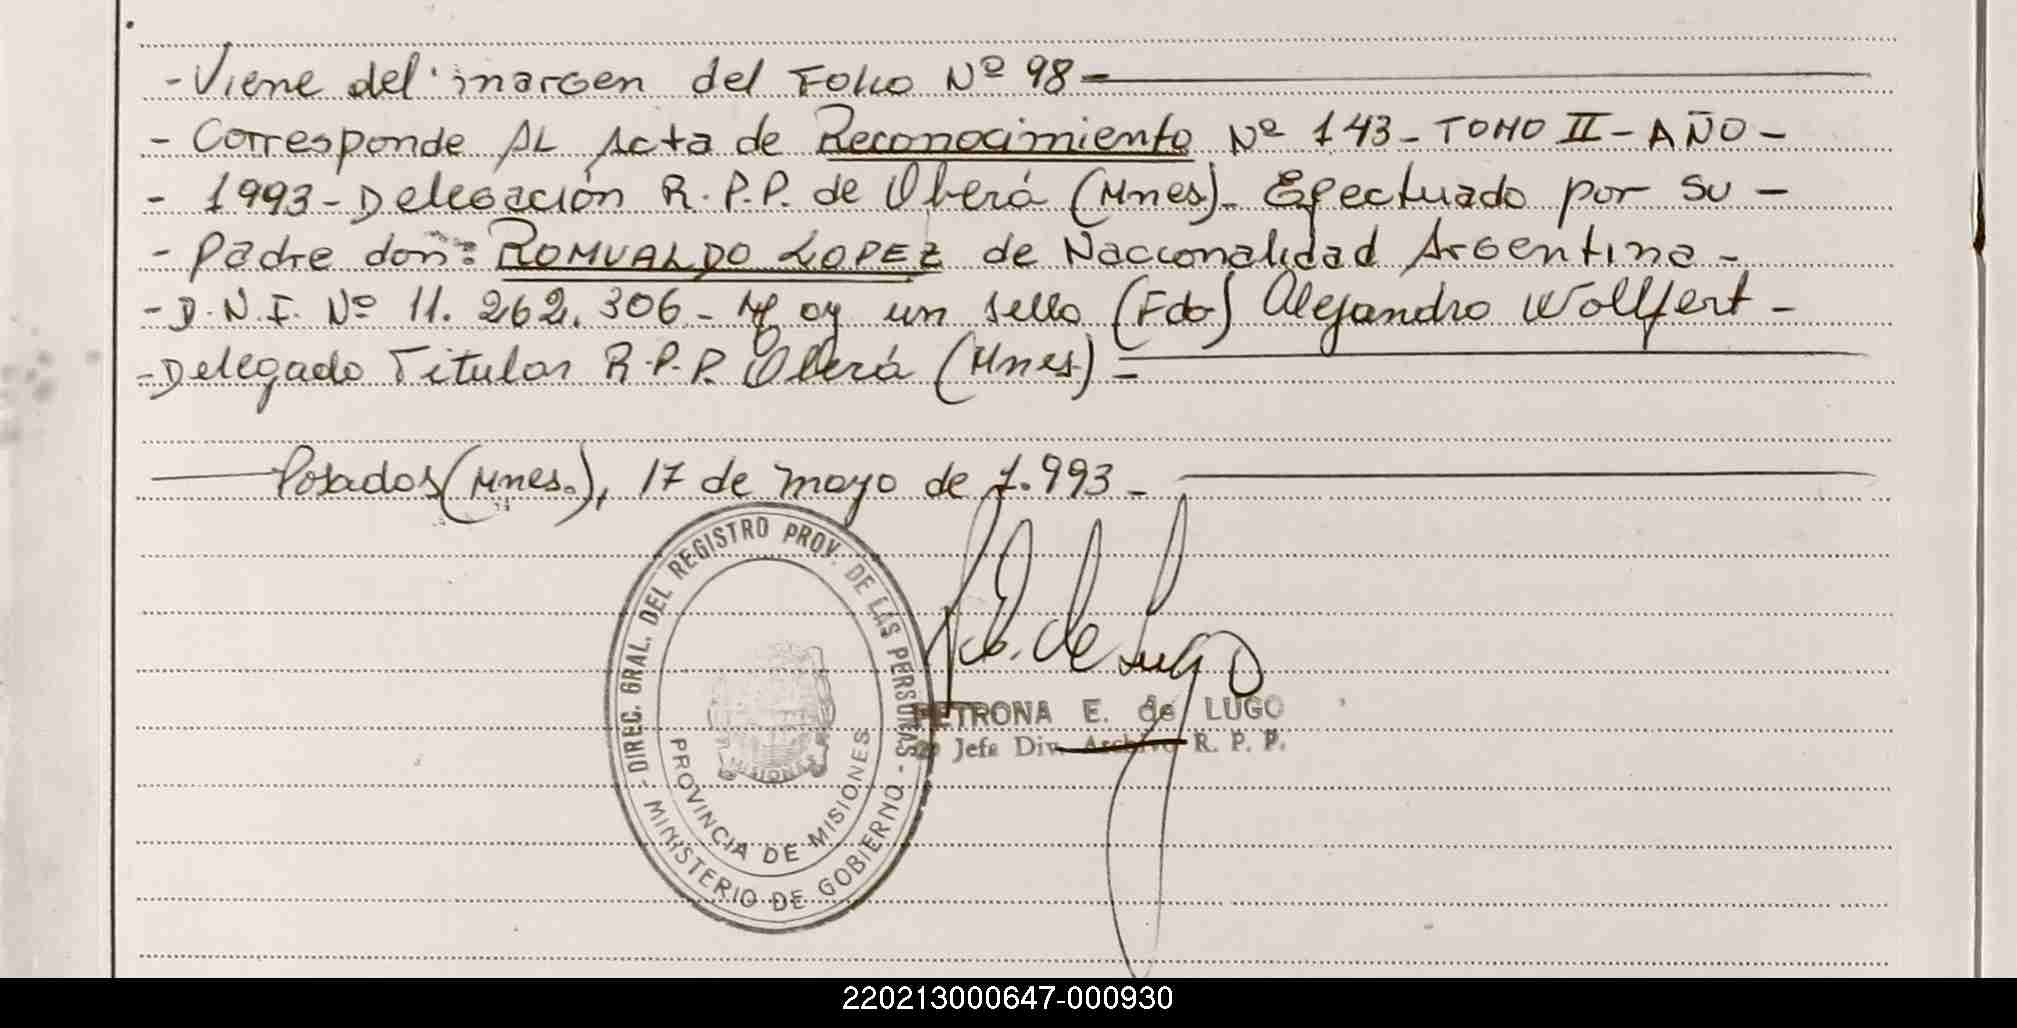 -Viene del margen del Folio Nº 98-
- Corresponde AL Acta de Reconocimiento Nº 143- TOMO II- AÑO -
- 1993- Delegación R.P.P. de Oberá (Mnes)- Efectuado por su -
- Padre don: ROMUALDO LOPEZ de Nacionalidad Argentina -
-D.N.I. Nº 11.262.306- Hoy un sello (Fdo) Alejandro Wollfert -
-Delegado Titular R.P.P. Oberá (Mnes) =
Posadas (Mnes.), 17 de mayo de 1.993 -
- DIREC. GRAL. DEL REGISTRO PROV. DE LAS PERSONAS -
MINISTERIO DE GOBIERNO
PROVINCIA DE MISIONES
MISIONES
de Lugo
PETRONA E. de LUGO
Jefa Div. Archivo R. P. P.
220213000647-000930